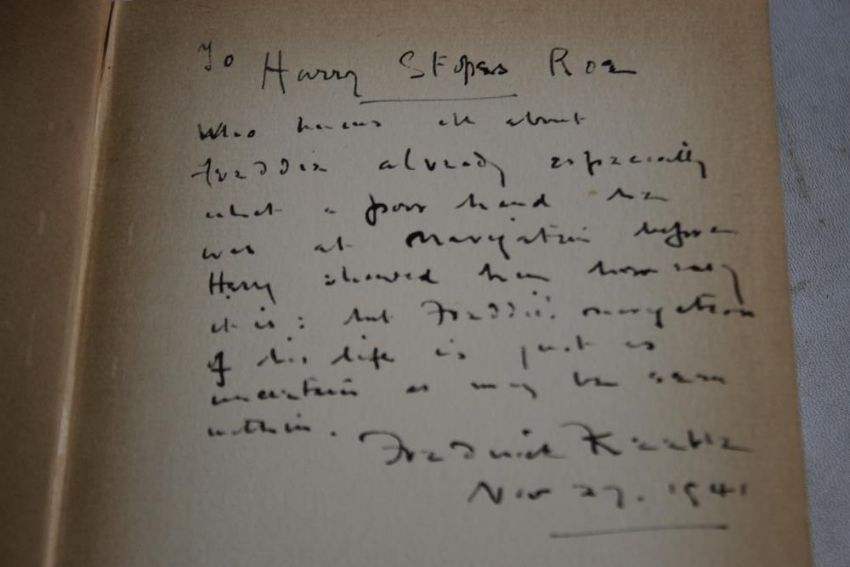 To Harry Stopes Roe
Who knows all about
Freddie already especially
what a poor hand he
was at navigation before
Harry showed him how easy
it is: but Freddie's navigation
of his life is just as
uncertain as may be seen
within.
Frederick
Nov 27. 1941